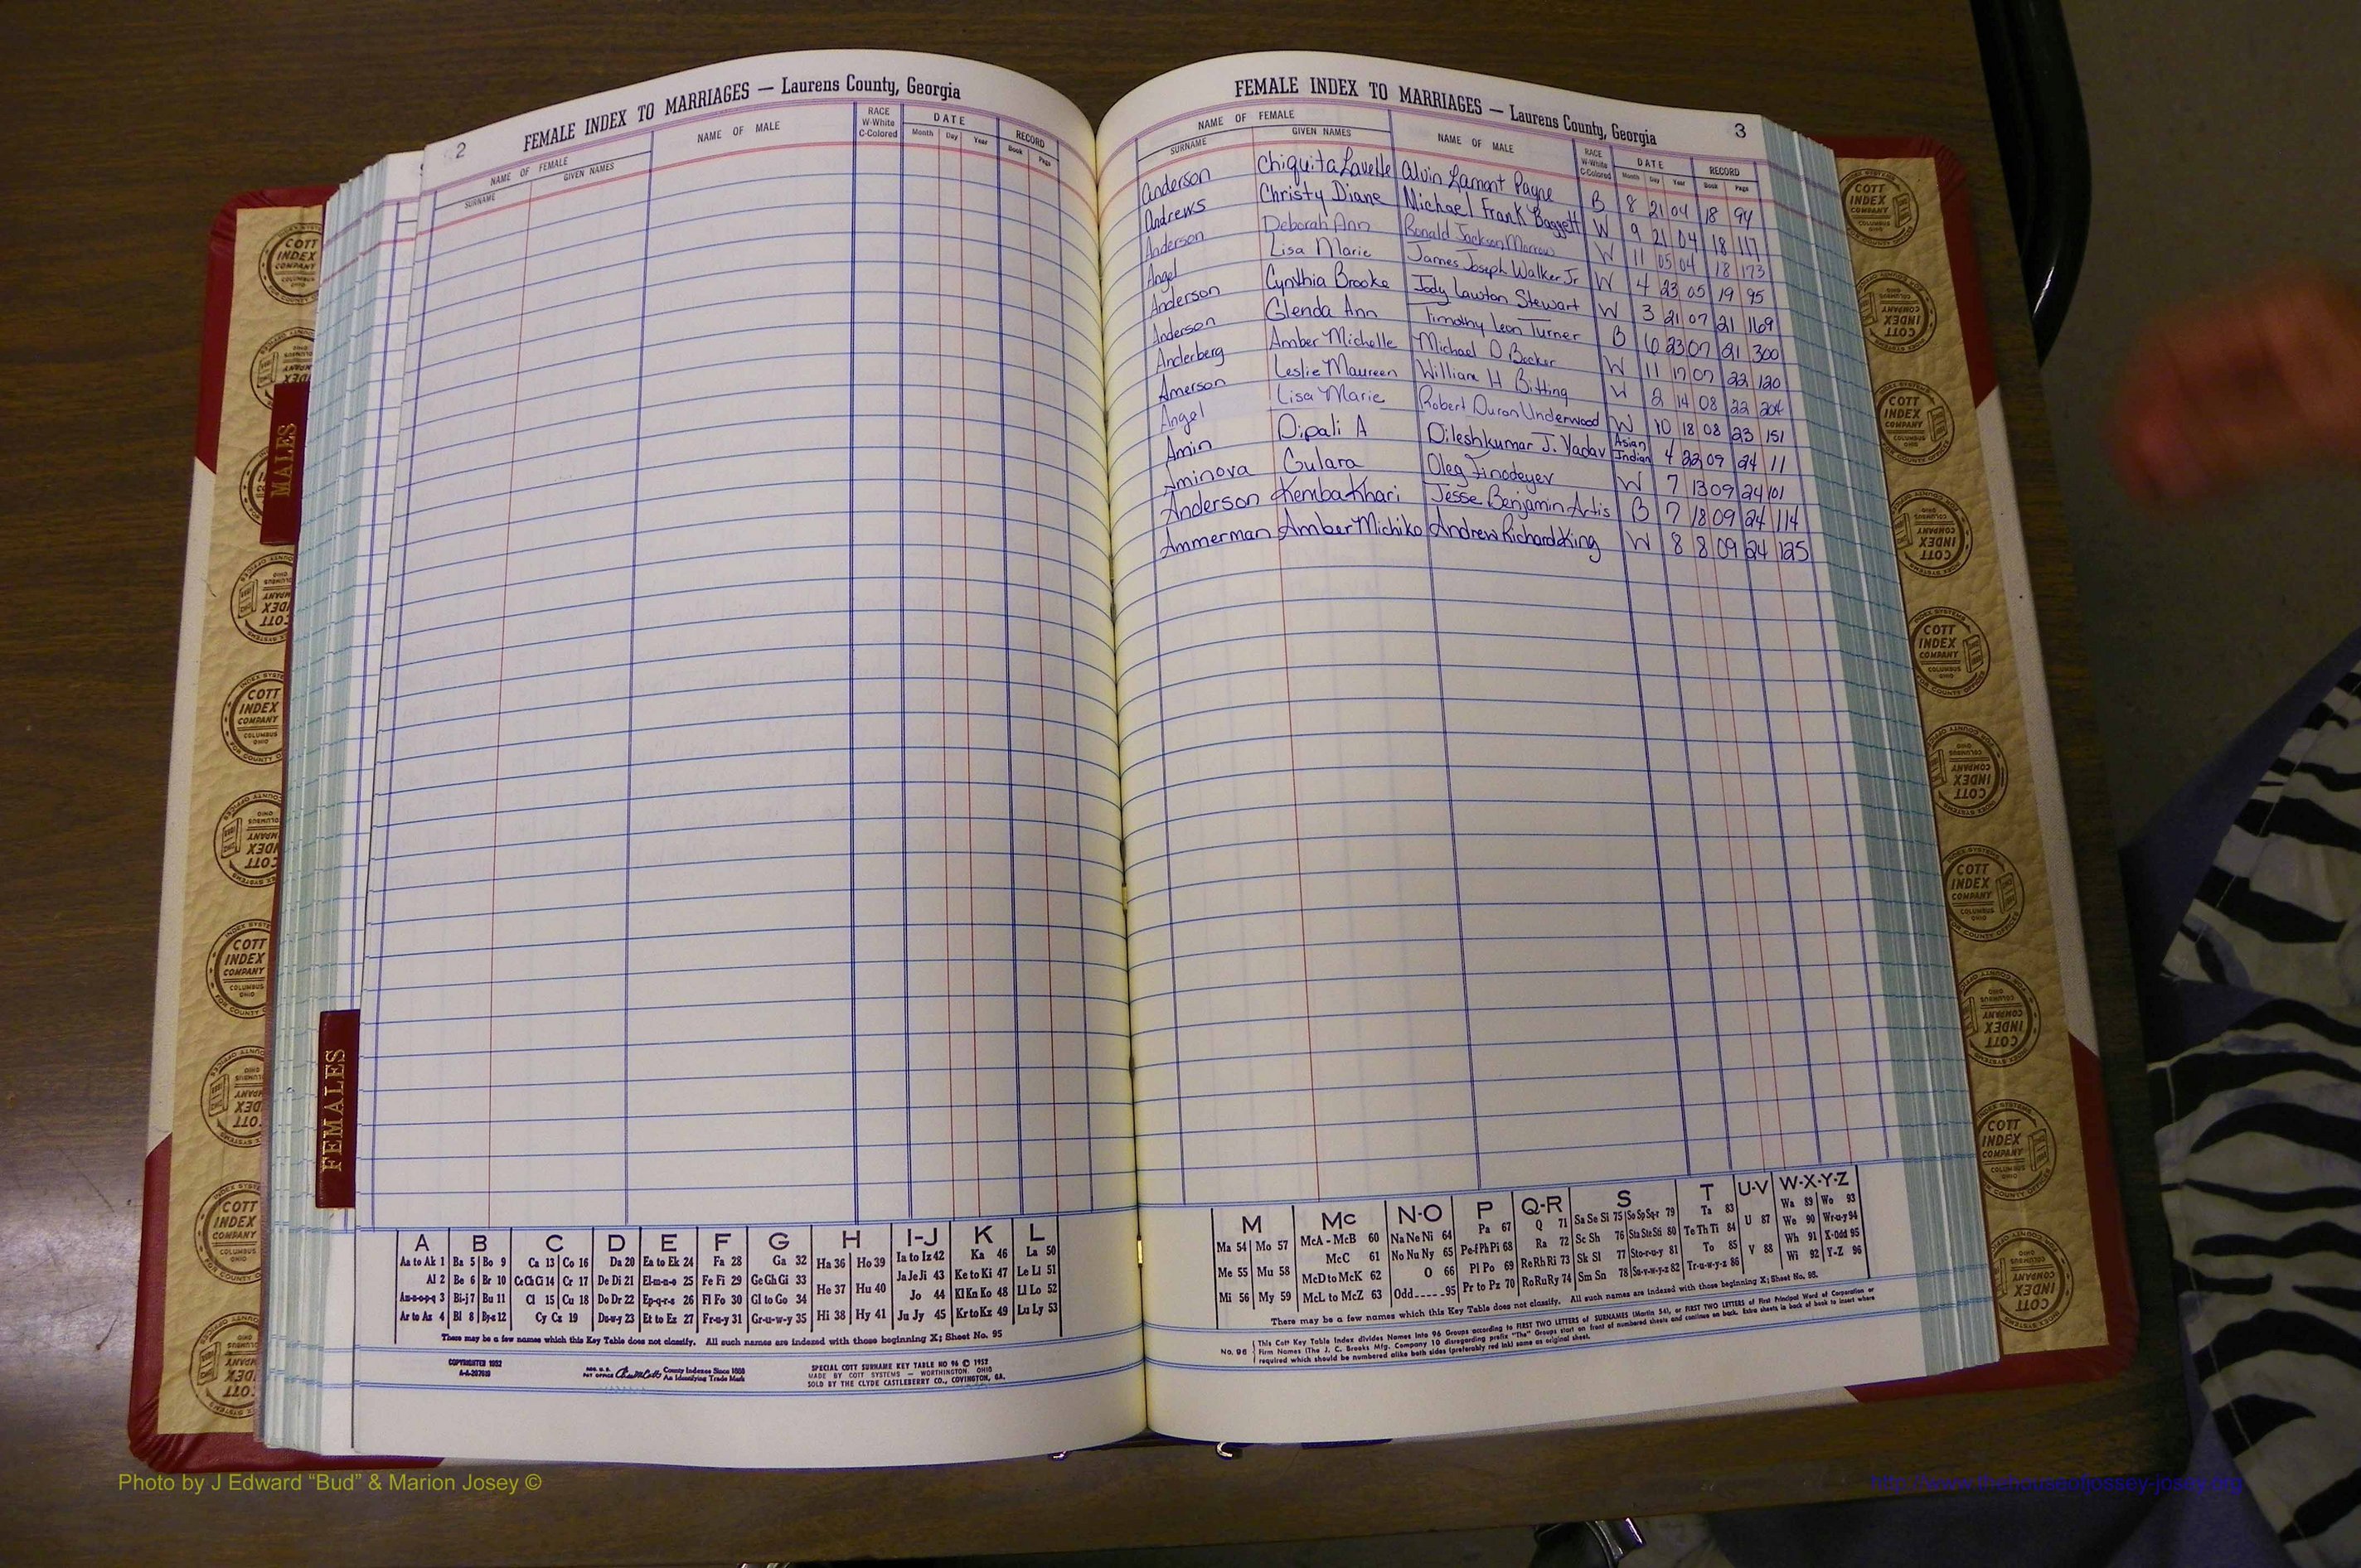 2
FEMALE INDEX TO MARRIAGES — Laurens County, Georgia
NAME OF FEMALE
SURNAME GIVEN NAMES
NAME OF MALE
RACE
W-White
C-Colored
DATE
Month Day Year
RECORD
Book Page
FEMALE INDEX TO MARRIAGES — Laurens County, Georgia
3
NAME OF FEMALE
SURNAME GIVEN NAMES
NAME OF MALE
RACE
W-White
C-Colored
DATE
Month Day Year
RECORD
Book Page
Anderson Chiquita Lavelle Alvin Lamont Payne B 8 21 04 18 94
Andrews Christy Diane Michael Frank Baggett W 9 21 04 18 117
Anderson Deborah Ann Ronald Jackson Morrow W 11 05 04 18 173
Angel Lisa Marie James Joseph Walker Jr W 4 23 05 19 95
Anderson Cynthia Brooke Jody Lawton Stewart W 3 21 07 21 169
Anderson Glenda Ann Timothy Leon Turner B 6 23 07 21 300
Anderberg Amber Michelle Michael D Becker W 11 17 07 22 120
Amerson Leslie Maureen William H Bitting W 2 14 08 22 204
Angel Lisa Marie Robert Duron Underwood W 10 18 08 23 151
Amin Dipali A Dileshkumar J. Yadav Asian Indian 4 22 09 24 11
Aminova Gulara Oleg Finodeyev W 7 13 09 24 101
Anderson Kemba Khari Jesse Benjamin Artis B 7 18 09 24 114
Ammerman Amber Michiko Andrew Richard King W 8 8 09 24 125
MALES
FEMALES
COTT
INDEX
COMPANY
COLUMBUS
OHIO
A B C D E F G H I-J K L
Aa to Ak 1 Ba 5 Bo 9 Ca 13 Co 16 Da 20 Ea to Ek 24 Fa 28 Ga 32 Ha 36 Ho 39 Ia to Iz 42 Ka 46 La 50
Al 2 Be 6 Br 10 Ce Ch Ci 14 Cr 17 De Di 21 El-m-n-o 25 Fe Fi 29 Ge Gh Gi 33 He 37 Hu 40 Ja Je Ji 43 Ke to Ki 47 Le Li 51
Am-n-o-p-q 3 Bi-j 7 Bu 11 Cl 15 Cu 18 Do Dr 22 Ep-q-r-s 26 Fl Fo 30 Gl to Go 34 Hi 38 Hy 41 Jo 44 Kl Kn Ko 48 Ll Lo 52
Ar to Az 4 Bl 8 By-z 12 Cy Cz 19 Du-w-y 23 Et to Ez 27 Fr-u-y 31 Gr-u-w-y 35 Ju Jy 45 Kr to Kz 49 Lu Ly 53
There may be a few names which this Key Table does not classify. All such names are indexed with those beginning X; Sheet No. 95
COPYRIGHTED 1932
County Indexes Since 1888
An Identifying Trade Mark
SPECIAL COTT SURNAME KEY TABLE NO 96 © 1952
MADE BY COTT SYSTEMS — WORTHINGTON, OHIO
SOLD BY THE CLYDE CASTLEBERRY CO., COVINGTON, GA.
M Mc N-O P Q-R S T U-V W-X-Y-Z
Ma 54 Mo 57 McA - McB 60 Na Ne Ni 64 Pa 67 Q 71 Sa Se Si 75 So Sp Sq-r 79 Ta 83 U 87 Wa 89 Wo 93
Me 55 Mu 58 McC 61 No Nu Ny 65 Pe-f Ph Pi 68 Ra 72 Sc Sh 76 Sta Ste Sti 80 Te Th Ti 84 V 88 We 90 Wr-u-y 94
Mi 56 My 59 McD to McK 62 O 66 Pl Po 69 Re Rh Ri 73 Sk Sl 77 Sto-r-u-y 81 To 85 Wh 91 X-Odd 95
McL to McZ 63 Odd 95 Pr to Pz 70 Ro Ru Ry 74 Sm Sn 78 Su-v-w-y-z 82 Tr-u-w-y-z 86 Wi 92 Y-Z 96
There may be a few names which this Key Table does not classify. All such names are indexed with those beginning X; Sheet No. 95.
No. 96
This Cott Key Table Index divides Names into 96 Groups according to FIRST TWO LETTERS of SURNAMES (Martin 54), or FIRST TWO LETTERS of First Principal Word of Corporation or
Firm Names (The J. C. Brooks Mfg. Company 10 disregarding prefix "The" Groups start on front of numbered sheets and continue on back. Extra sheets in back of book to insert where
required which should be numbered alike both sides (preferably red ink) same as original sheet.
Photo by J Edward "Bud" & Marion Josey ©
http://www.thehouseofjossey-josey.org